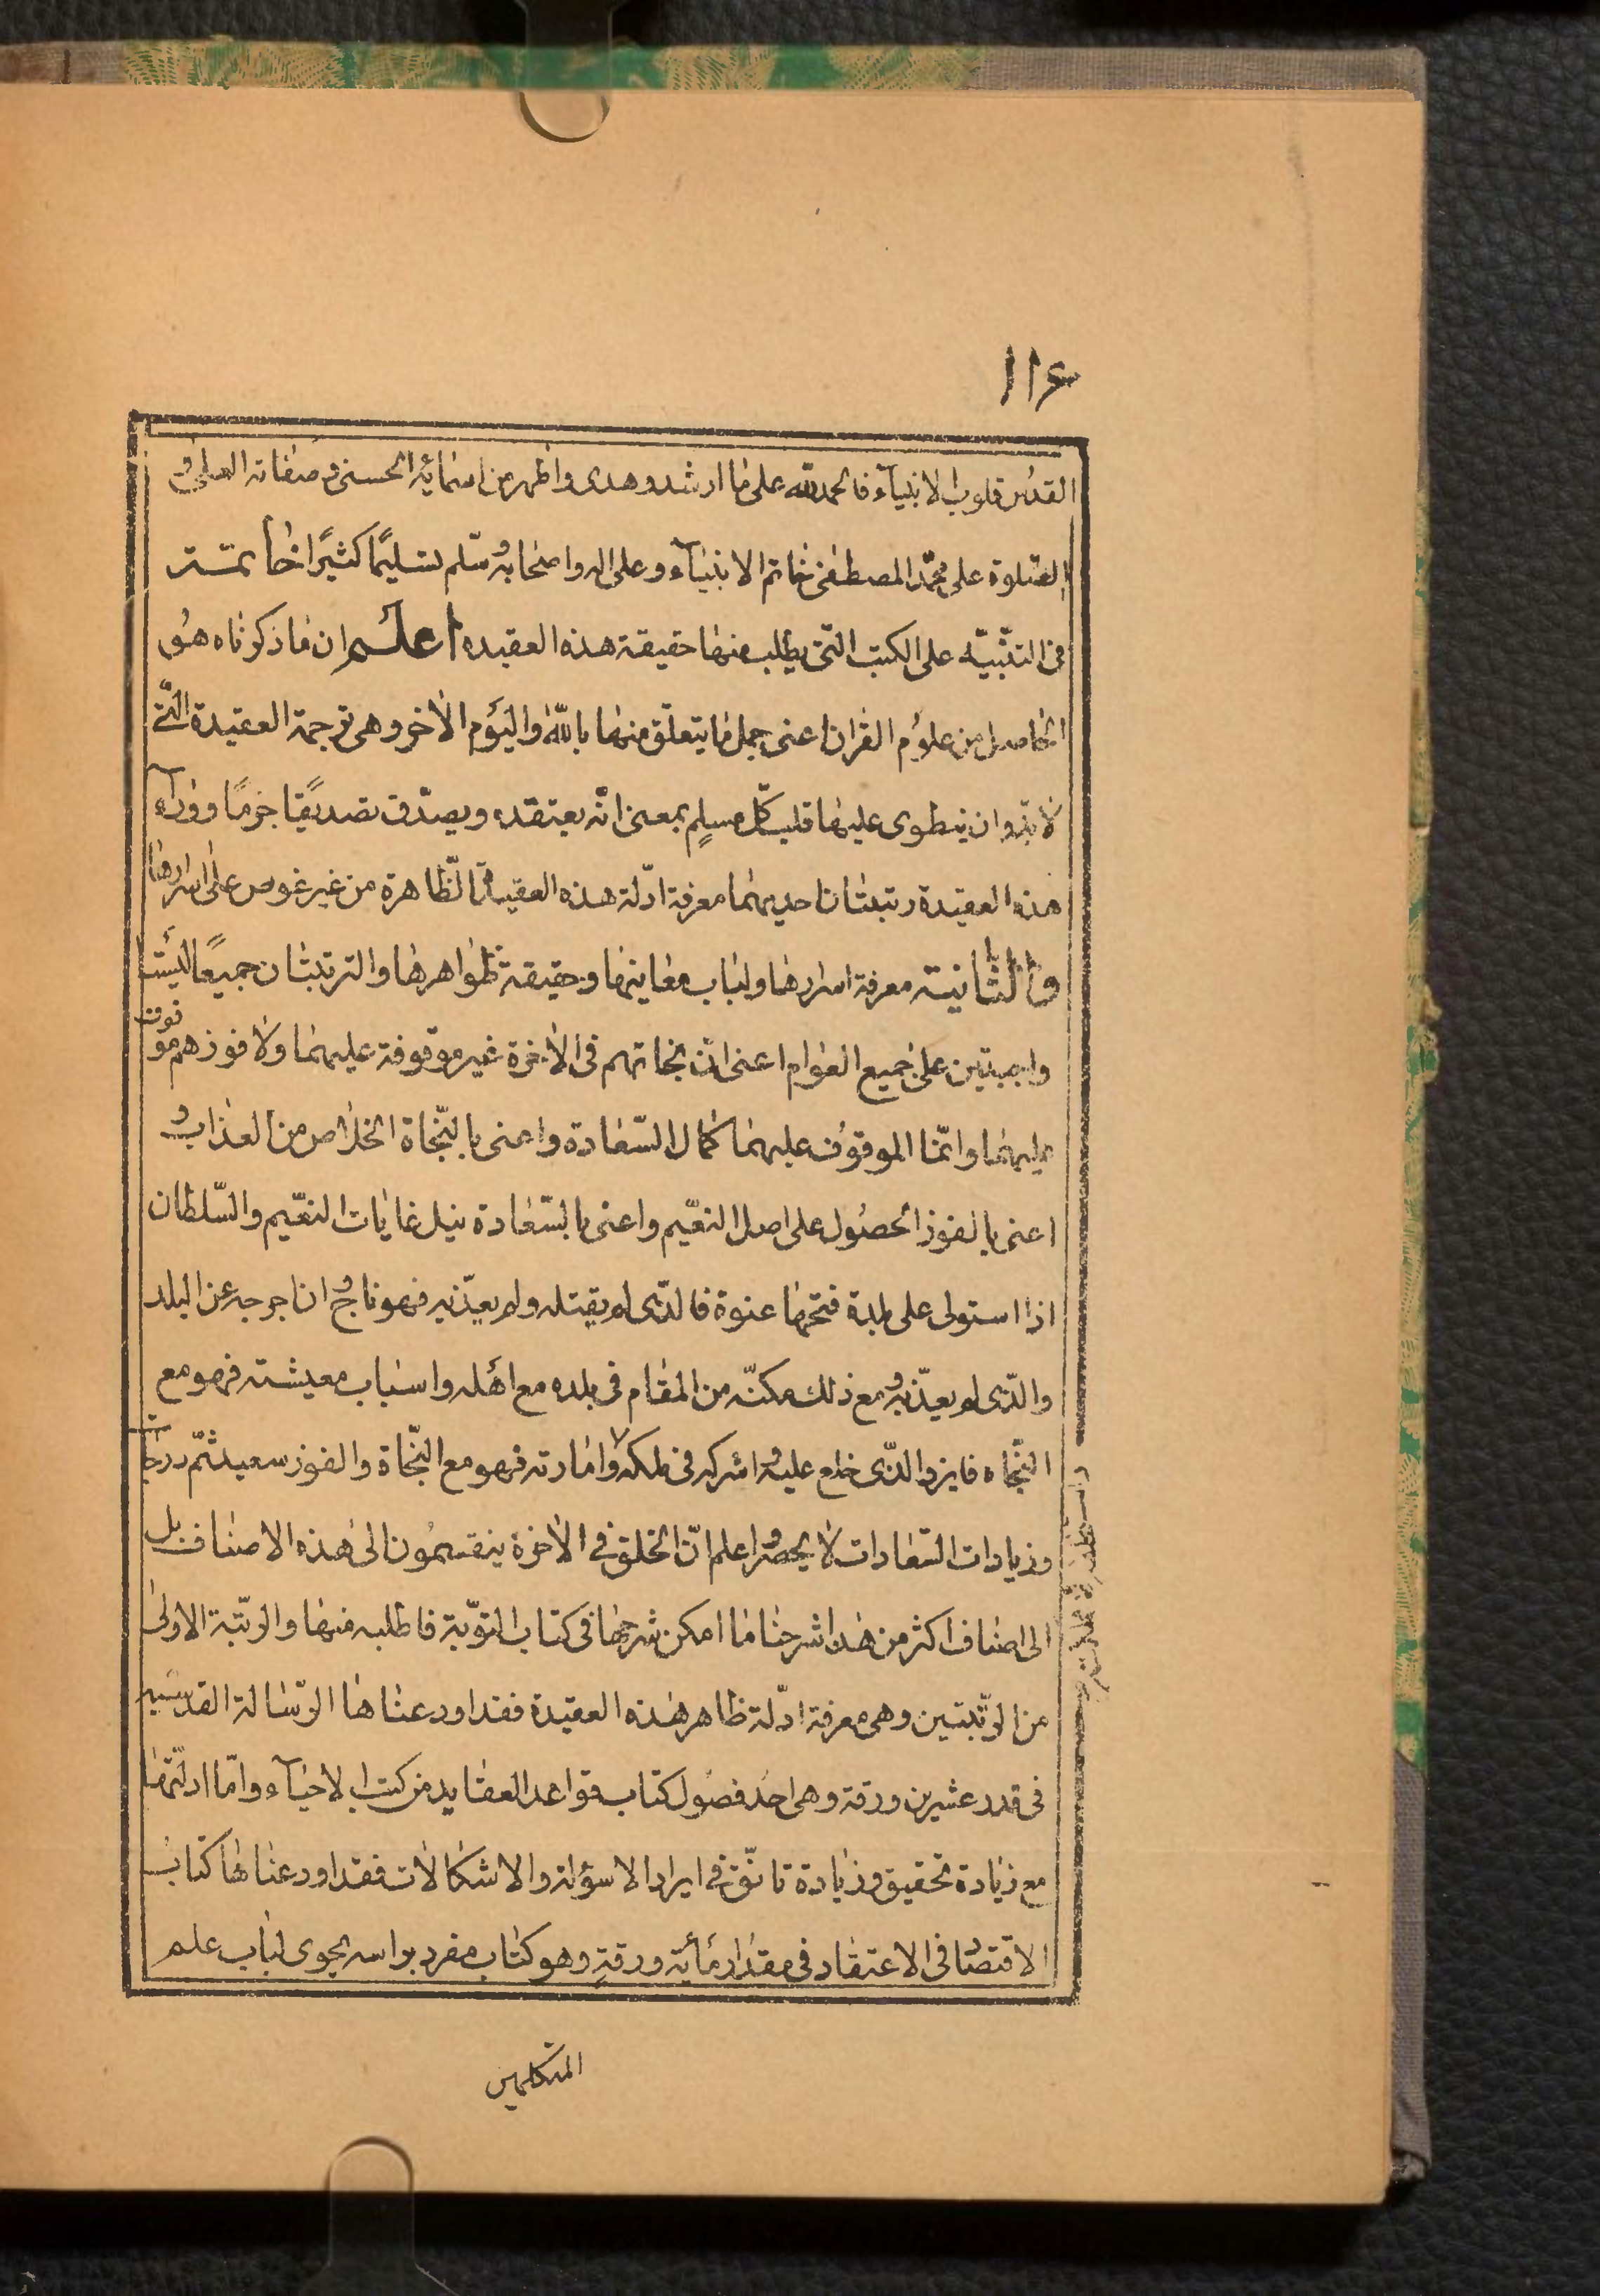 ١١۶
القدس قلوب الانبیآء فالحمد للّه علی ما ارشد و هدی و اظهر من اسمائه الحسنی و صفاته العلی و
الصّلوة علی محمّد المصطفی خاتم الانبیآء و علی اله و اصحابه و سلّم تسلیمًا کثیرًا خاتمة
فی التنبیه علی الکتب الّتی یطلب منها حقیقة هذه العقیده اعلم ان ما ذکرناه هو
الحاصل من علوم القران اعنی جمل ما یتعلّق منها باللّه و الیوم الاخر و هی ترجمة العقیدة الّتی
لا بدّ و ان ینطوی علیها قلب کلّ مسلم بمعنی انّه یعتقده و یصدّق تصدیقا جزمًا و ورآء
هذه العقیدة رتبتان احدیهما معرفة ادلّة هذه العقیدة الظّاهرة من غیر غوص علی اسرارها
و الثّانیة معرفة اسرارها و لباب معاینها و حقیقة ظواهرها و الترتبتان جمیعًا لیستا
واجبتین علی جمیع العوام اعنی انّ نجاتهم فی الاخرة غیر موقوفة علیهما و لا فوزهم موقوف
علیهما و انّما الموقوف علیهما کمال السّعادة و اعنی بالنّجاة الخلاص من العذاب و
اعنی بالفوز الحصول علی اصل النعیم و اعنی بالسّعادة نیل غایات النعیم و السّلطان
اذا استولی علی بلدة فتحها عنوة فالذّی لم یقتله و لم یعذّبه فهو ناج و ان اخرجه عن البلد
و الذّی لم یعذّبه و مع ذلك مکنّه من المقام فی بلده مع اهله و اسباب معیشته فهو مع
النّجاه فایز و الذّی خلع علیه و اشرکه فی ملکه و امارته فهو مع النّجاة و الفوز سعید ثمّ درجات
و زیادات السّعادات لا یحصر و اعلم انّ الخلق فی الاخرة ینقسمون الی هذه الاصناف بل
الی اصناف اکثر من هذا شرحنا ما امکن شرحها فی کتاب التوّبة فاطلبه منها و الرتّبة الاولی
من الرّتبتین و هی معرفة ادلّة ظاهر هذه العقیدة فقد اودعناها الرّسالة القدسیه
فی قدر عشرین ورقة و هی احد فصول کتاب قواعد العقاید من کتاب الاحیآء و امّا ادلّتها
مع زیادة تحقیق و زیادة تانّق فی ایراد الاسؤلة و الاشکالات فقد اودعناها کتاب
الاقتصا فی الاعتقاد فی مقدار مائة ورقة و هو کتاب مفرد براسه یحوی لباب علم
المتکلمین